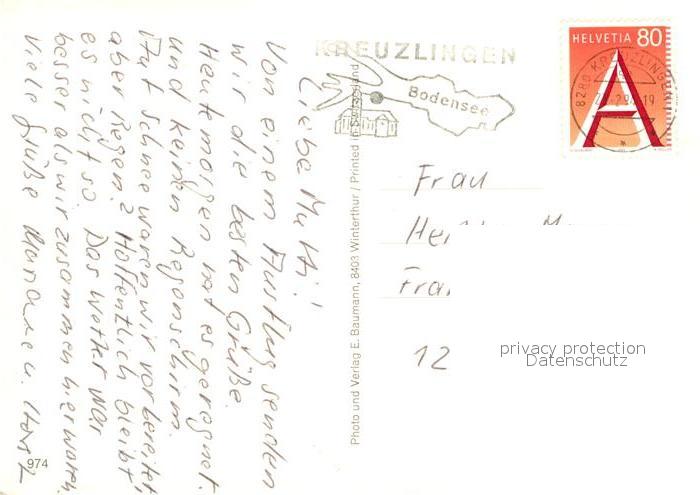 Liebe Mutti!
Von einem Ausflug senden
wir die besten Grüße.
Heute morgen hat es geregnet
und keinen Regenschirm.
Auf Schnee waren wir vorbereitet,
aber Regen? Hoffentlich bleibt
es nicht so. Das Wetter war
besser als wir zusammen hier waren.
Viele Grüße
974
Photo und Verlag E. Baumann, 8403 Winterthur / Printed in Switzerland
KREUZLINGEN
Bodensee
HELVETIA 80
A
8280 KREUZLINGEN
Frau
12
privacy protection
Datenschutz